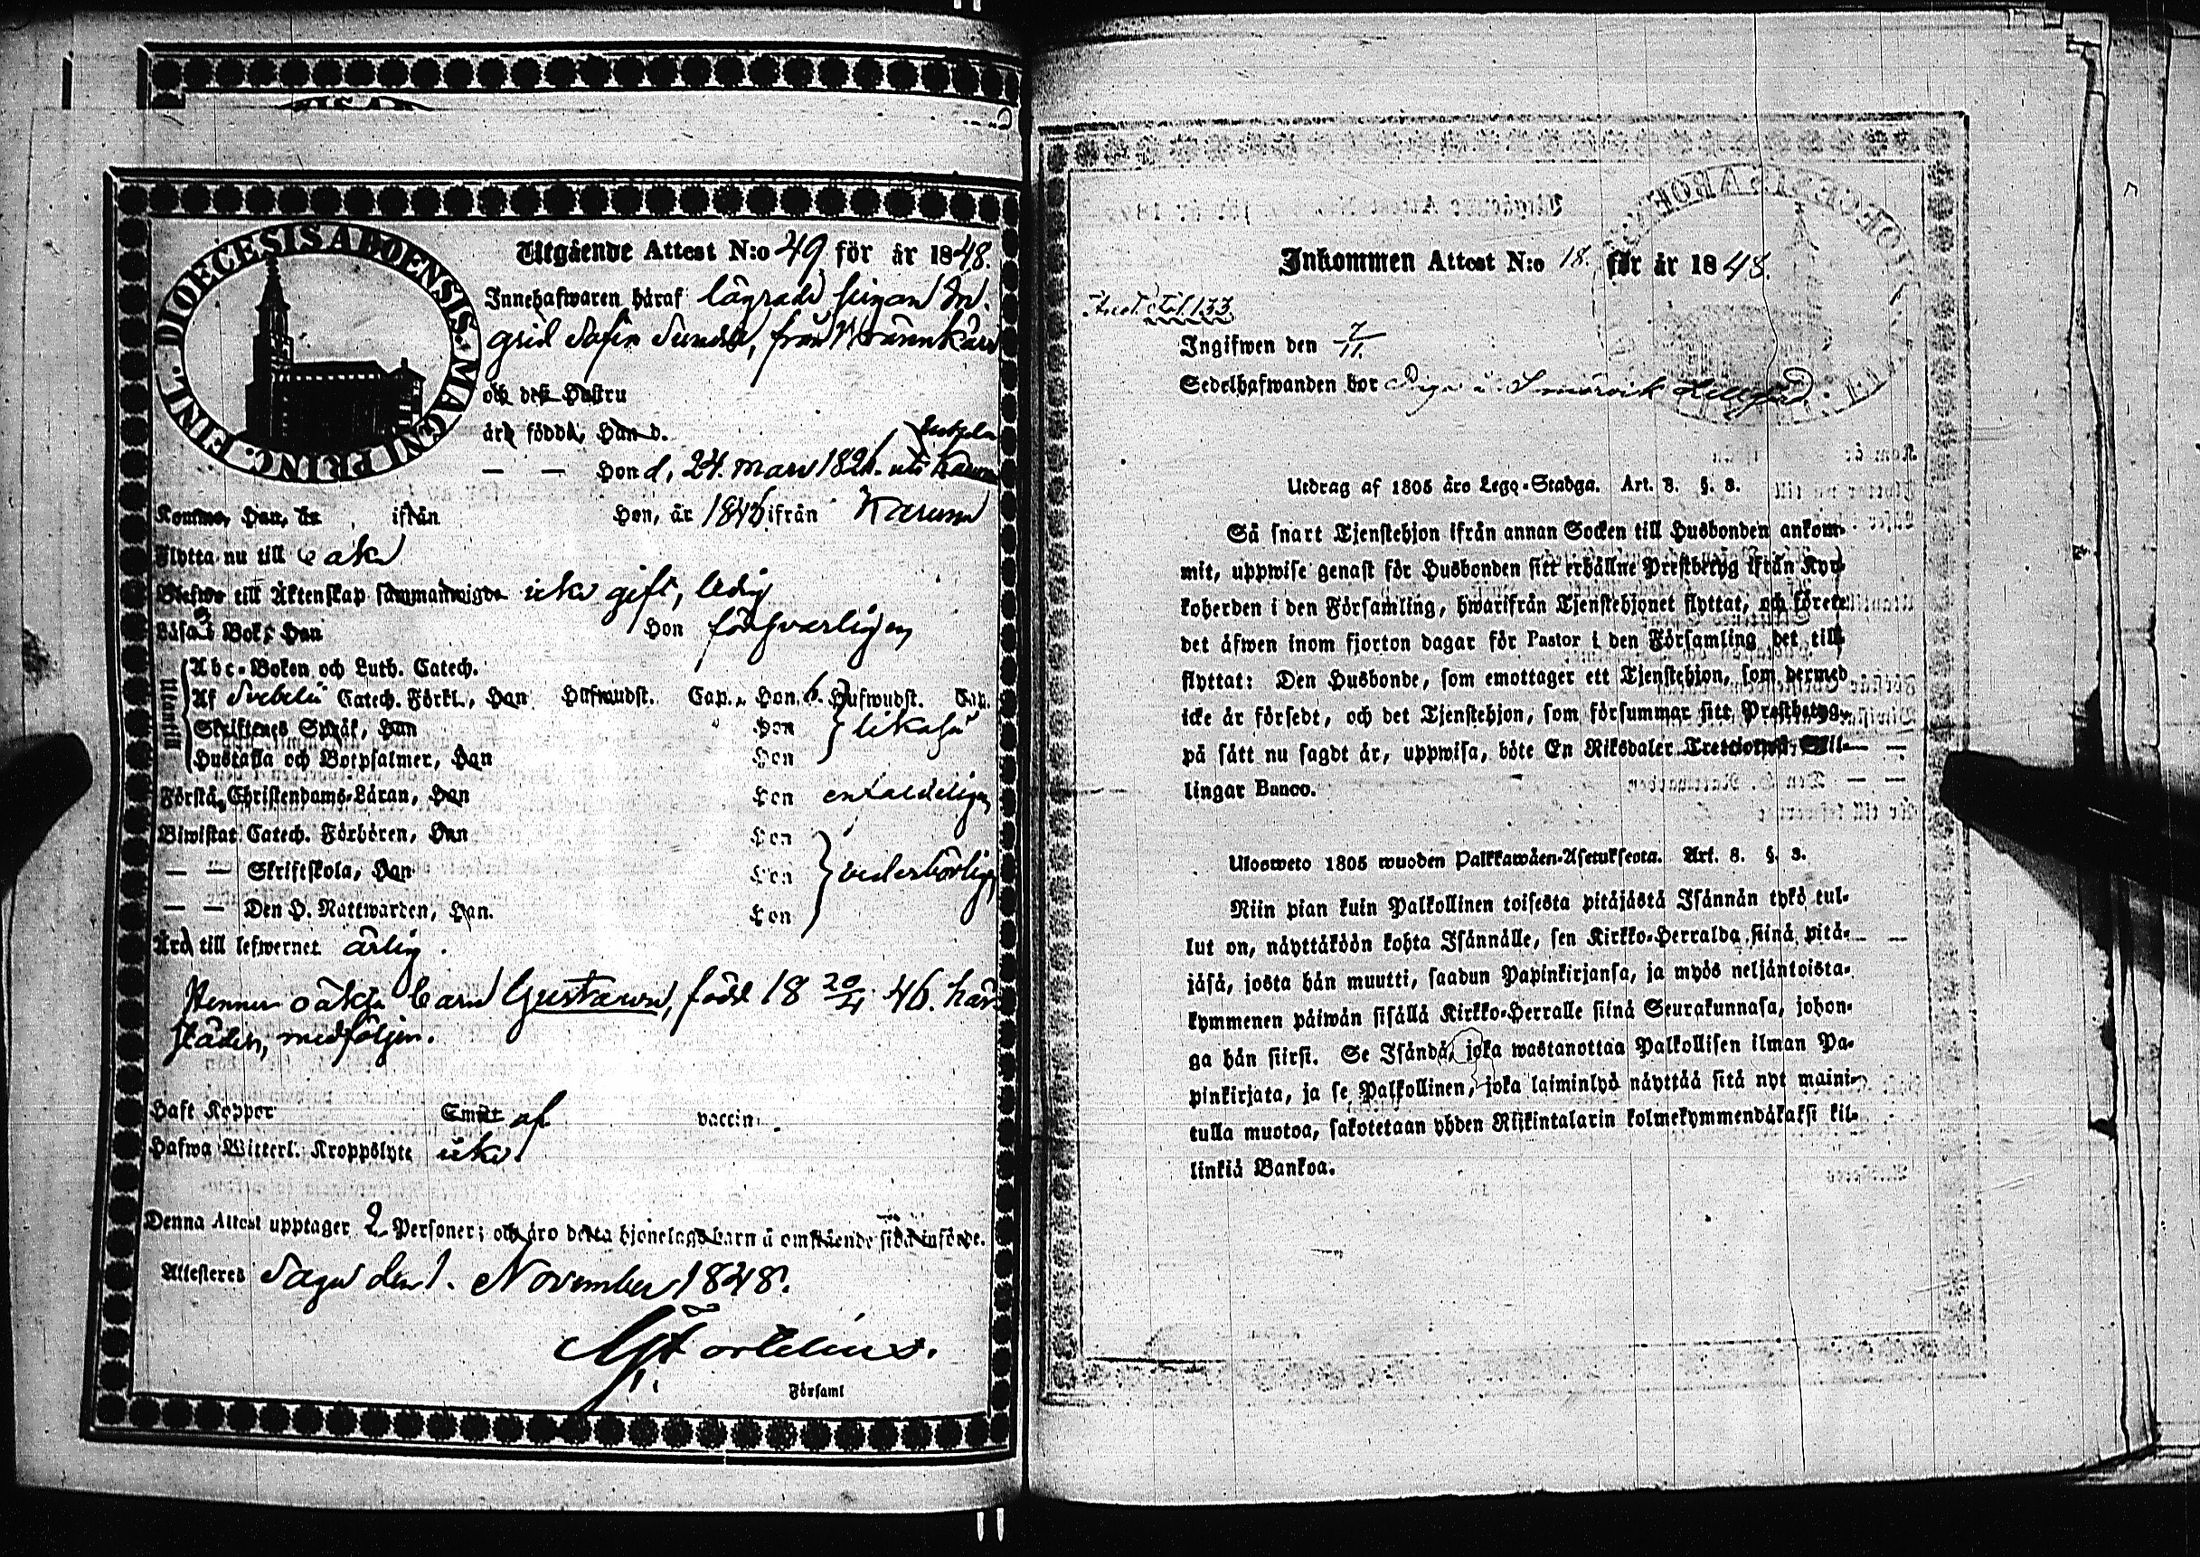 DIOECESIS ABOENSIS. MAGNI PRINC. FINL.
Utgående Attest N:o 49 för år 1848.
Innehafwaren häraf lägrade pigan In
grid Sofia från
och deß Hustru
äro födde, Han d.
— — Hon d, 24. mars 182 uti Karuna
Kommo, Han, år , ifrån Hon, år 1846 ifrån Karuna
Flytta nu till
Blefwo till Äktenskap sammanwigde icke gift, ledig
Läsa i Bok, Han Hon försvarligen
Utantill
Abc-Boken och Luth. Catech.
Af Svebelii Catech. Förkl., Han Hufwudst. Cap., Hon 6. Hufwudst. Cap.
Skriftenes Språk, Han Hon likaså
Hustafla och Botpsalmer, Han Hon
Förstå Christendoms-Läran, Han Hon enfaldeligen
Biwistat Catech. Förhören, Han Hon
— — Skriftskola, Han Hon vederbörligen
— — Den H. Nattwarden, Han. Hon
Äro till lefwernet ärlig.
Hennes oäkta barn Gustava, född 18 20/4 46. här
städes, medföljer.
Haft Koppor Smitt af vaccin.
Hafwa Witterl. Kroppslyte icke
Denna Attest upptager 2 Personer; och äro detta hjonelags barn å omstående sida införde.
Attesteras Sagu den 1. November 1848.
Församl
Inkommen Attest N:o 18. för år 1848.
Fol. 133
Ingifwen den 7/11.
Sedelhafwanden bor Piga i Smörvik
Utdrag af 1805 års Lego-Stadga. Art. 8. §. 3.
Så snart Tjenstehjon ifrån annan Socken till Husbonden ankom-
mit, uppwise genast för Husbonden sitt erhållne Prestbetyg ifrån Kyr-
koherden i den Församling, hwarifrån Tjenstehjonet flyttat, och förete
det äfwen inom fjorton dagar för Pastor i den Församling det till
flyttat: Den Husbonde, som emottager ett Tjenstehjon, som dermed
icke är försedt, och det Tjenstehjon, som försummar sitt Prestbetyg,
på sätt nu sagdt är, uppwisa, böte En Riksdaler Trettiotwå Skil-
lingar Banco.
Ulosweto 1805 wuoden Palkkawäen-Asetuksesta. Art. 8. §. 3.
Niin pian kuin Palkollinen toisesta pitäjästä Isännän tykö tul-
lut on, näyttäköön kohta Isännälle, sen Kirkko-Herralda siinä pitä-
jäsä, josta hän muutti, saadun Papinkirjansa, ja myös neljäntoista-
kymmenen päiwän sisällä Kirkko-Herralle siinä Seurakunnasa, johon-
ga hän siirsi. Se Isändä, joka wastanottaa Palkollisen ilman Pa-
pinkirjata, ja se Palkollinen, joka laiminlyö näyttää sitä nyt maini-
tulla muotoa, sakotetaan yhden Riikintalarin kolmekymmendäkaksi kil-
linkiä Bankoa.